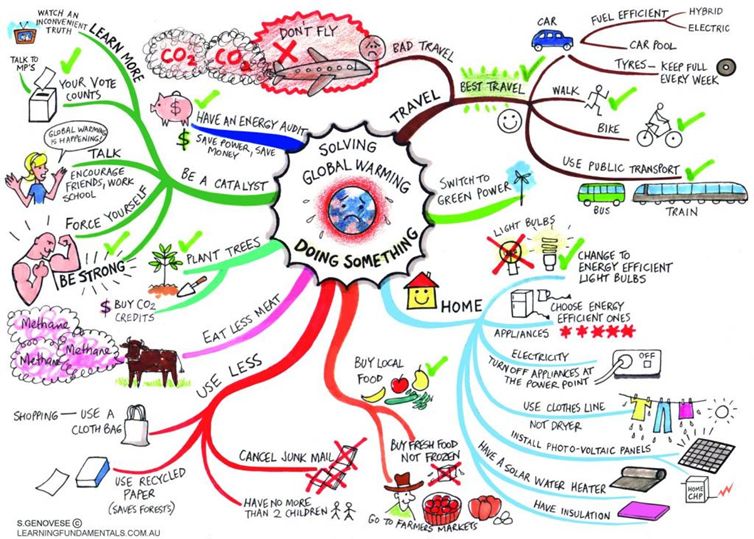 WATCH AN
INCONVENIENT
TRUTH
LEARN MORE
TALK TO
MP'S
YOUR VOTE
COUNTS
GLOBAL WARMING
IS HAPPENING!
TALK
ENCOURAGE
FRIENDS, WORK
SCHOOL
FORCE YOURSELF
BE STRONG
BE A CATALYST
$
HAVE AN ENERGY AUDIT
$ SAVE POWER, SAVE
MONEY
CO2
CO2
DON'T FLY
BAD TRAVEL
TRAVEL
BEST TRAVEL
CAR
FUEL EFFICIENT
HYBRID
ELECTRIC
CAR POOL
TYRES - KEEP FULL
EVERY WEEK
WALK
BIKE
USE PUBLIC TRANSPORT
BUS
TRAIN
SOLVING
GLOBAL WARMING
DOING SOMETHING
SWITCH TO
GREEN POWER
PLANT TREES
$ BUY CO2
CREDITS
EAT LESS MEAT
Methane
Methane
Methane
USE LESS
SHOPPING — USE A
CLOTH BAG
USE RECYCLED
PAPER
(SAVES FORESTS)
CANCEL JUNK MAIL
HAVE NO MORE
THAN 2 CHILDREN
BUY LOCAL
FOOD
BUY FRESH FOOD
NOT FROZEN
GO TO FARMERS MARKETS
HOME
LIGHT BULBS
CHANGE TO
ENERGY EFFICIENT
LIGHT BULBS
CHOOSE ENERGY
EFFICIENT ONES
APPLIANCES
ELECTRICITY
TURN OFF APPLIANCES AT
THE POWER POINT
OFF
USE CLOTHES LINE
NOT DRYER
INSTALL PHOTO-VOLTAIC PANELS
HAVE A SOLAR WATER HEATER
HOME
CHP
HAVE INSULATION
S.GENOVESE ©
LEARNINGFUNDAMENTALS.COM.AU